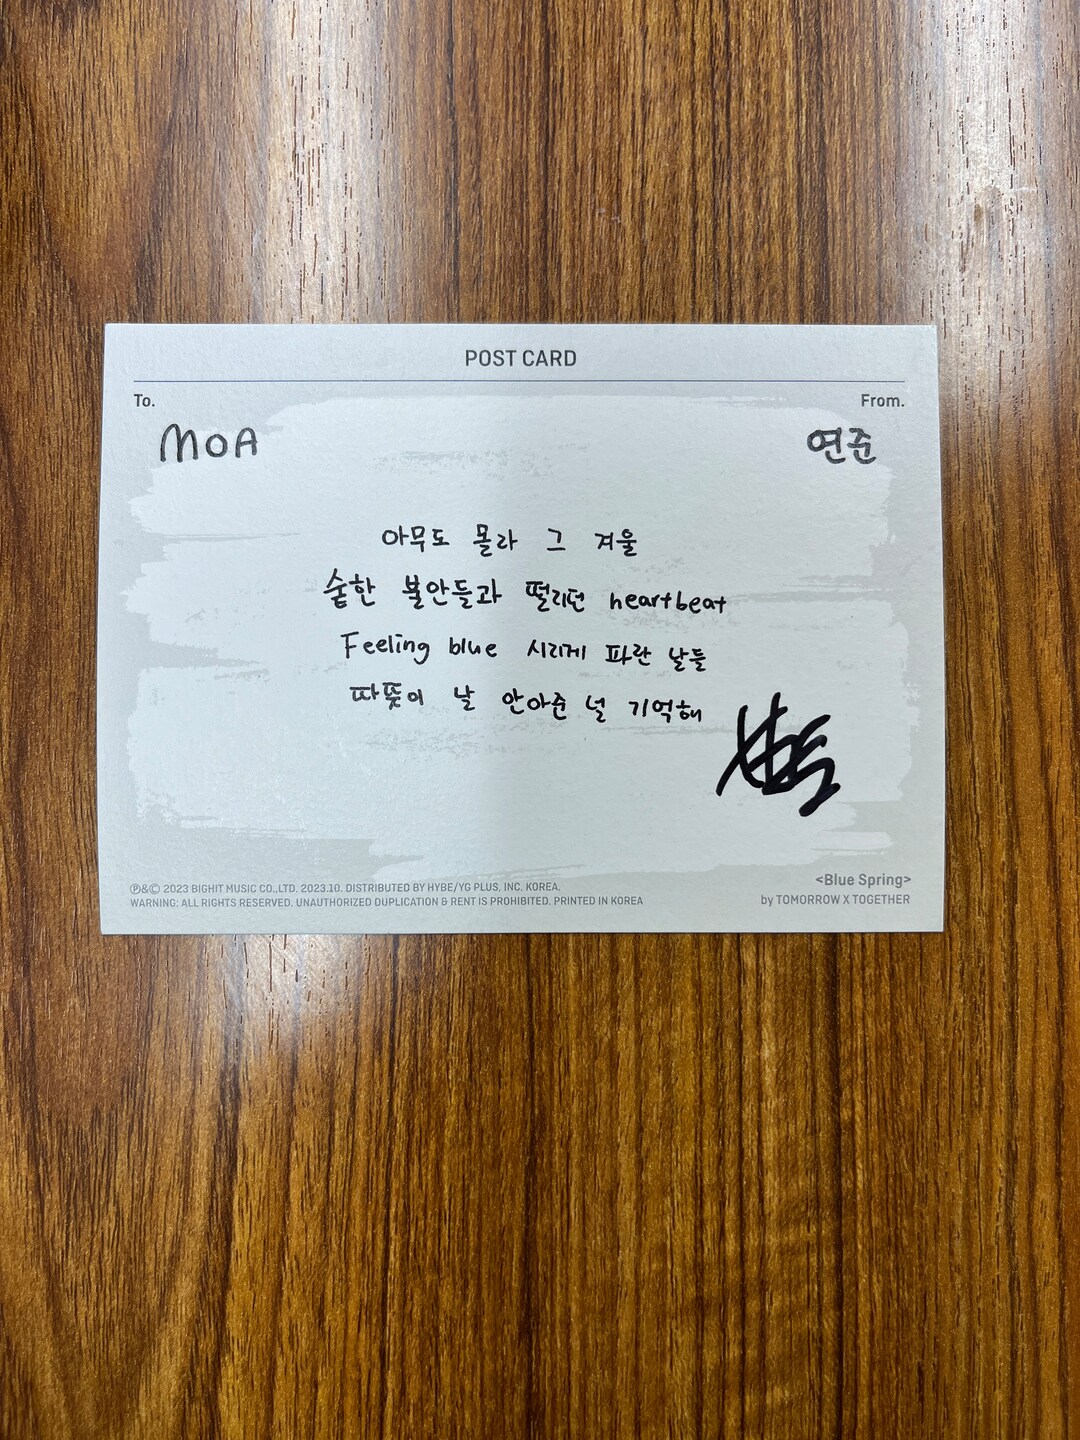 POST CARD
To.
From.
MOA
연준
아무도 몰라 그 겨울
숱한 불안들과 떨리던 heartbeat
Feeling blue 시리게 파란 날들
따뜻이 날 안아준 널 기억해
℗&© 2023 BIGHIT MUSIC CO.,LTD. 2023.10. DISTRIBUTED BY HYBE/YG PLUS, INC. KOREA.
WARNING: ALL RIGHTS RESERVED. UNAUTHORIZED DUPLICATION & RENT IS PROHIBITED. PRINTED IN KOREA
<Blue Spring>
by TOMORROW X TOGETHER